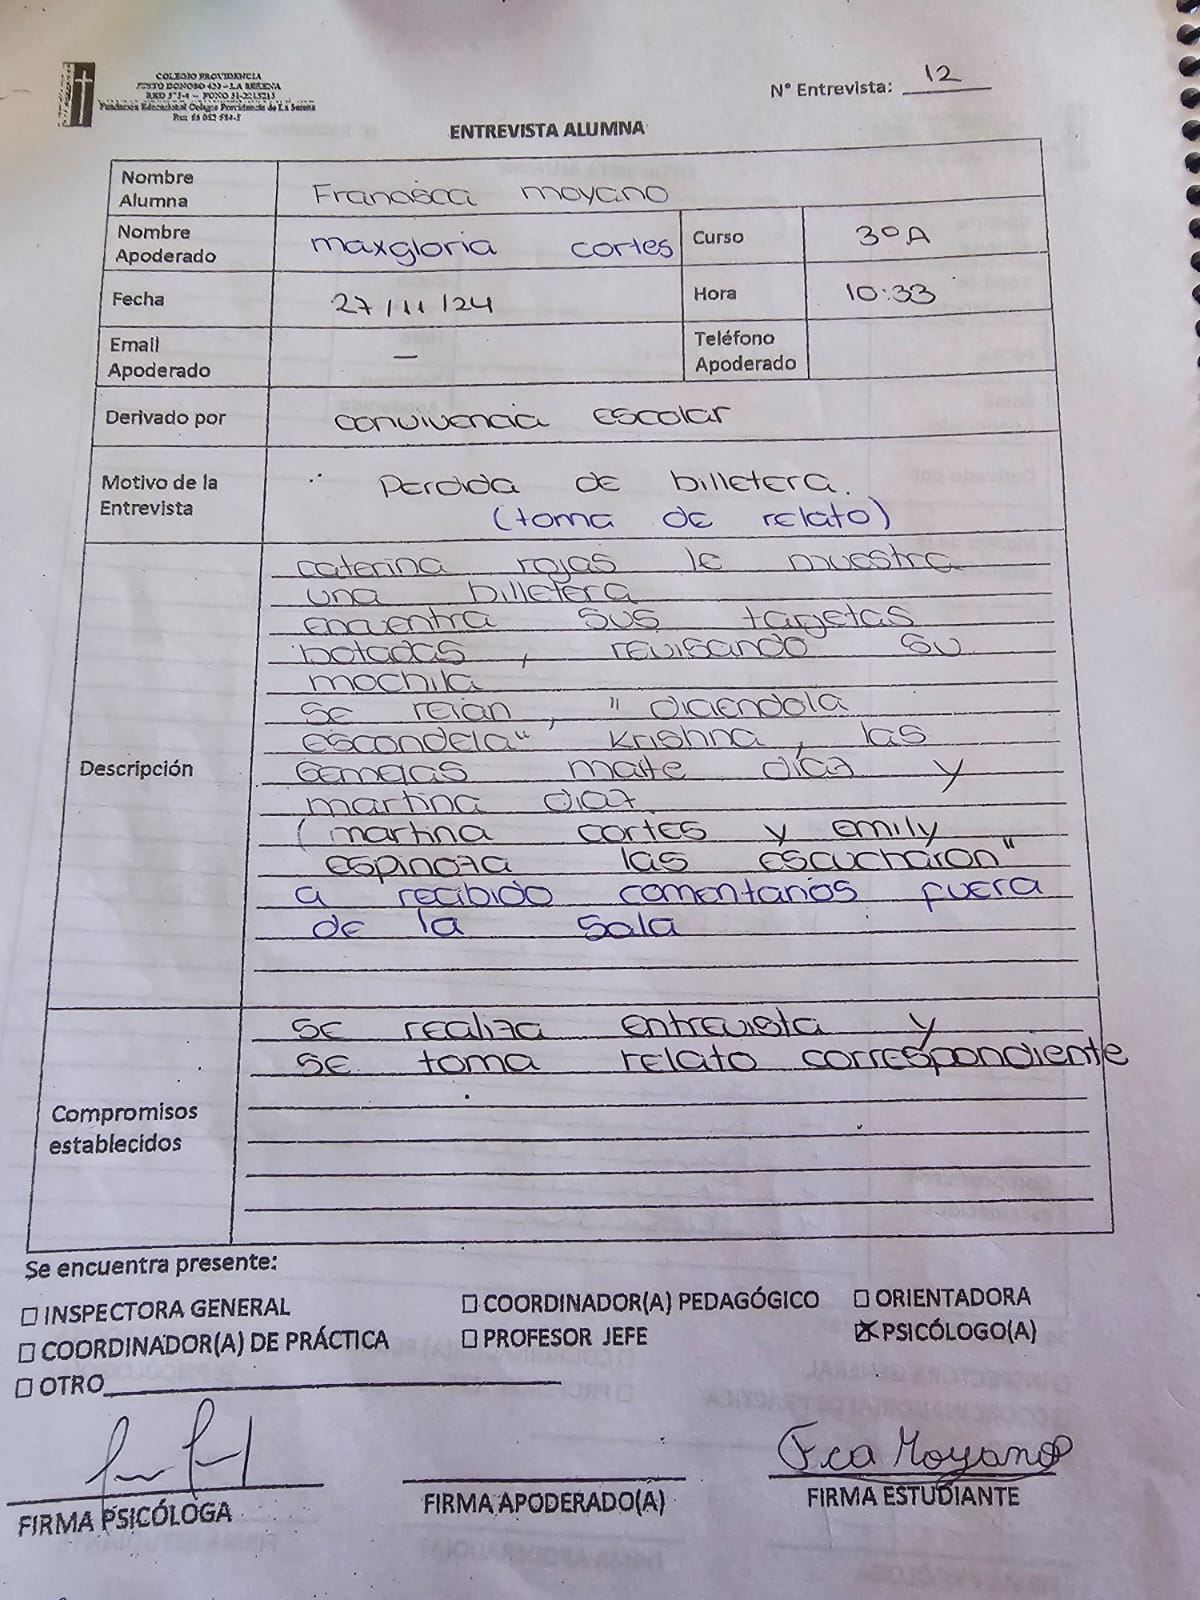 COLEGIO PROVIDENCIA
JUSTO DONOSO 420 – LA SERENA
RBD 575-4 – FONO 51-2215215
Fundación Educacional Colegio Providencia de La Serena
Rut 65 052 584-5
N° Entrevista: 12
ENTREVISTA ALUMNA
Nombre Alumna Francisca moyano
Nombre Apoderado maxgloria cortes Curso 3°A
Fecha 27/11/24 Hora 10:33
Email Apoderado — Teléfono Apoderado
Derivado por convivencia Escolar
Motivo de la Entrevista Perdida de billetera.
(toma de relato)
Descripción
caterina rojas le muestra
una billetera
encuentra sus tarjetas
botadas, revisando su
mochila
se reían, " diciendola
escondela" Krishna, las
Gemelas maite diaz y
martina diaz
(martina cortes y emily
espinoza las escucharon"
a recibido comentarios fuera
de la sala
Compromisos establecidos
se realiza entrevista y
se toma relato correspondiente
Se encuentra presente:
INSPECTORA GENERAL COORDINADOR(A) PEDAGÓGICO ORIENTADORA
COORDINADOR(A) DE PRÁCTICA PROFESOR JEFE PSICÓLOGO(A)
OTRO
Fca Moyano
FIRMA PSICÓLOGA FIRMA APODERADO(A) FIRMA ESTUDIANTE